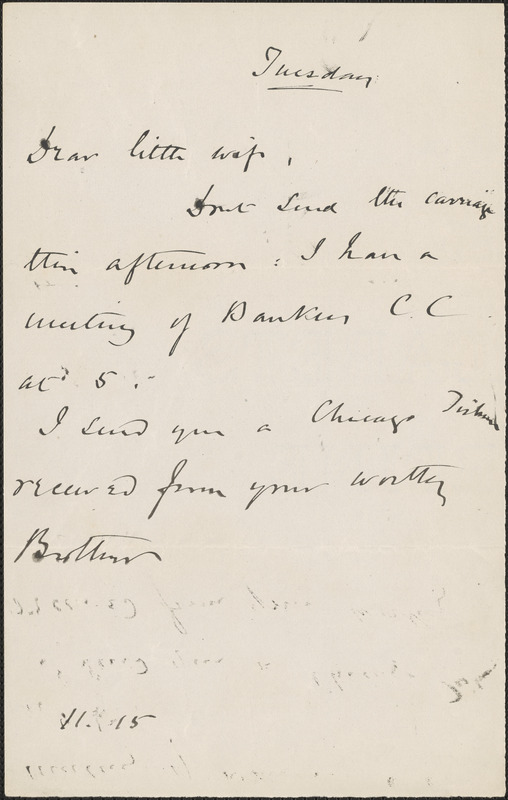 Tuesday
Dear little wife,
Dont send the carriage
this afternoon : I have a
meeting of Bankers C. C.
at 5.-
I send you a Chicago Tribune
received from your worthy
Brother
11. 15